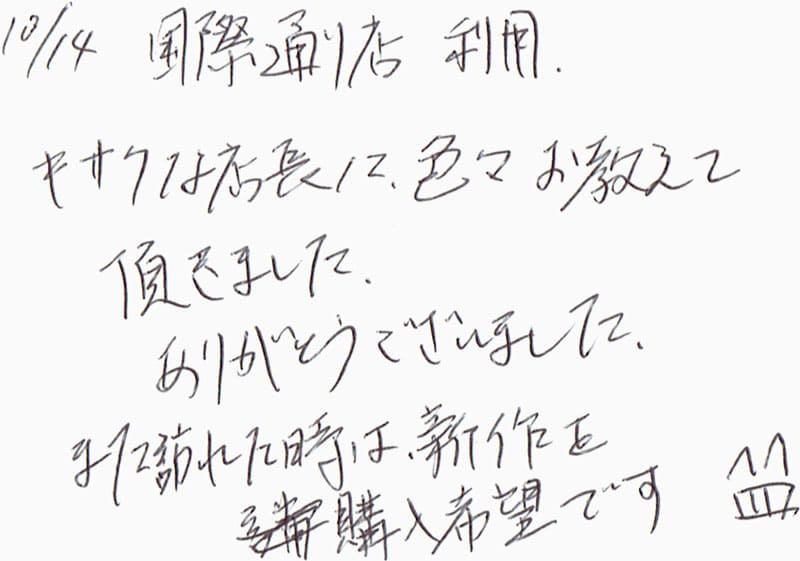 10/14 国際通り店 利用.
キサクな店長に、色々お教えて
頂きました.
ありがとうございました.
また訪れた時は、新作を
購入希望です